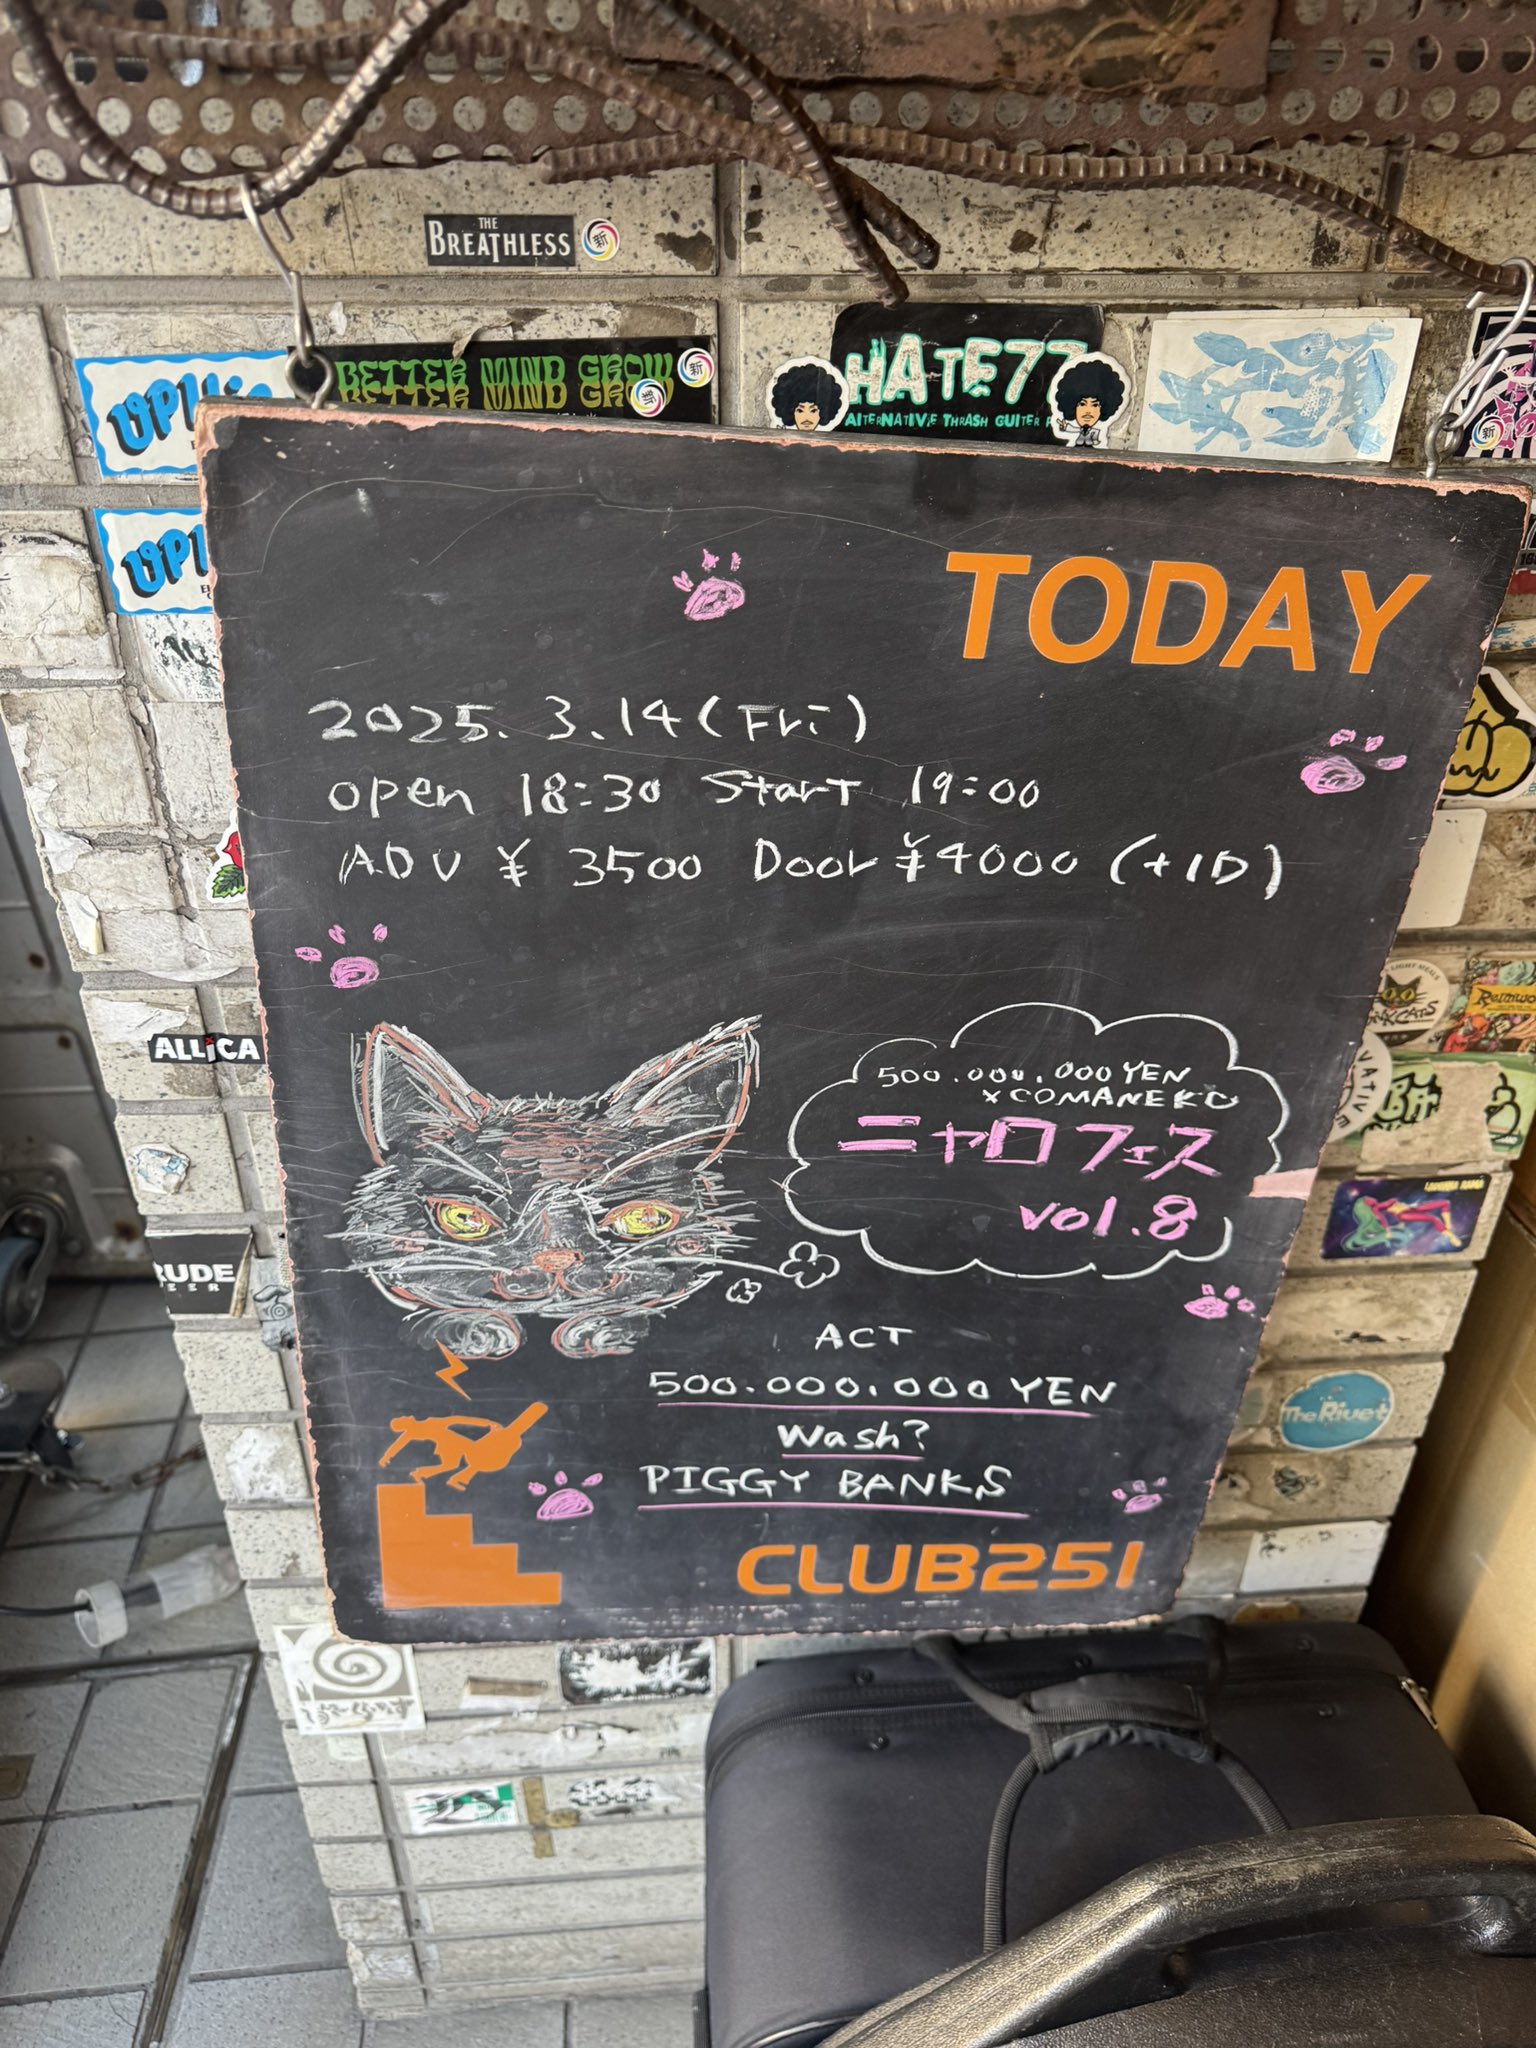 THE
BREATHLESS
新
BETTER MIND GROW
BETTER MIND GROW
新
新
HATE77
ALTERNATIVE THRASH GUITER
新
TODAY
2025.3.14(Fri)
open 18:30 Start 19:00
ADV ¥3500 Door ¥4000 (+1D)
ALLiCA
500.000.000YEN
×COMANEKO
ニャロフェス
vol.8
RUDE
ACT
500.000.000YEN
Wash?
PIGGY BANKS
The Rivet
CLUB251